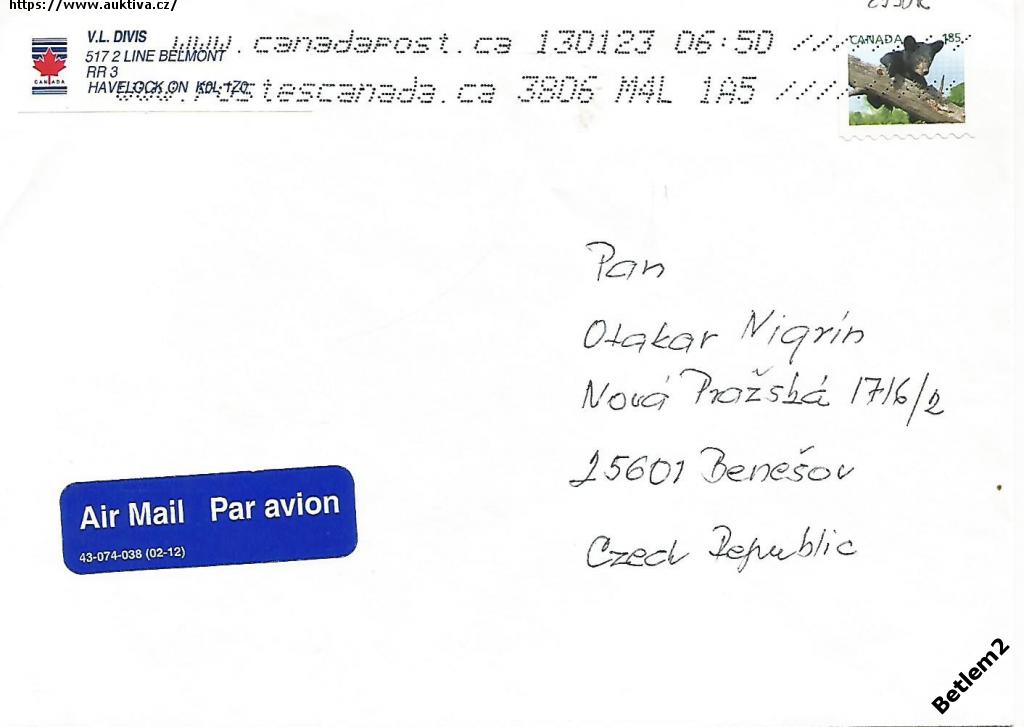 https://www.auktiva.cz/
V.L. DIVIS
517 2 LINE BELMONT
RR 3
HAVELOCK ON K0L 1Z0
CANADA
www.canadapost.ca 130123 06:50
www.postescanada.ca 3806 M4L 1A5
CANADA 185
Pan
Otakar Nigrín
Nová Pražská 1716/2
25601 Benešov
Czech Republic
Air Mail Par avion
43-074-038 (02-12)
Betlem2